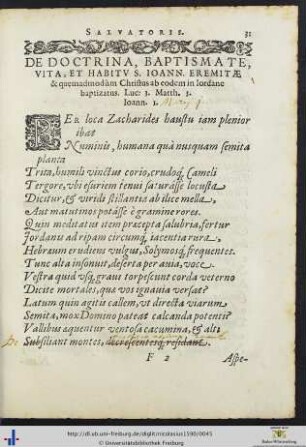 SALVATORIS. 31
DE DOCTRINA, BAPTISMATE,
VITA, ET HABITV S. IOANN. EREMITÆ
& quemadmodùm Christus ab eodem in Iordane
baptizatus. Luc: 3. Matth. 3.
Ioann. 1.
PER loca Zacharides haustu iam plenior
ibat
Numinis, humana quà nusquam semita
planta
Trita, humili vinctus corio, crudoq́; Cameli
Tergore, vbi esuriem tenui saturâsse locusta
Dicitur, & viridi stillantia ab ilice mella,
Aut matutinos potâsse è gramine rores.
Quin meditatus item præcepta salubria, fertur
Iordanis ad ripam circumq́; iacentia rura
Hebræum erudiens vulgus, Solymosq́; frequentes.
Tunc alta insonuit, deserta per auia, voce
Vestra quid vsq́; graui torpescunt corda veterno
Dicite mortales, quæ vos ignauia versat?
Latum quin agitis callem, vt directa viarum
Semita, mox Domino pateat calcanda potenti?
Vallibus æquentur ventosa cacumina, & alti
Subsidant montes, decrescentesq́; residant.
F 2 Aspe-
http://dl.ub.uni-freiburg.de/diglit/nicolasius1590/0045